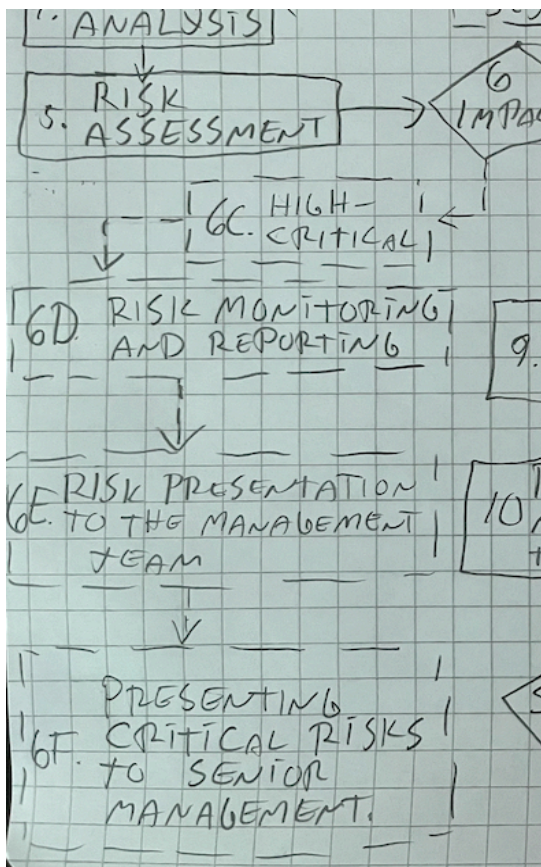 ANALYSIS
5. RISK
ASSESSMENT
6
6C. HIGH-
CRITICAL
6D. RISK MONITORING
AND REPORTING
9.
6E. RISK PRESENTATION
TO THE MANAGEMENT
TEAM
10
6F. PRESENTING
CRITICAL RISKS
TO SENIOR
MANAGEMENT.